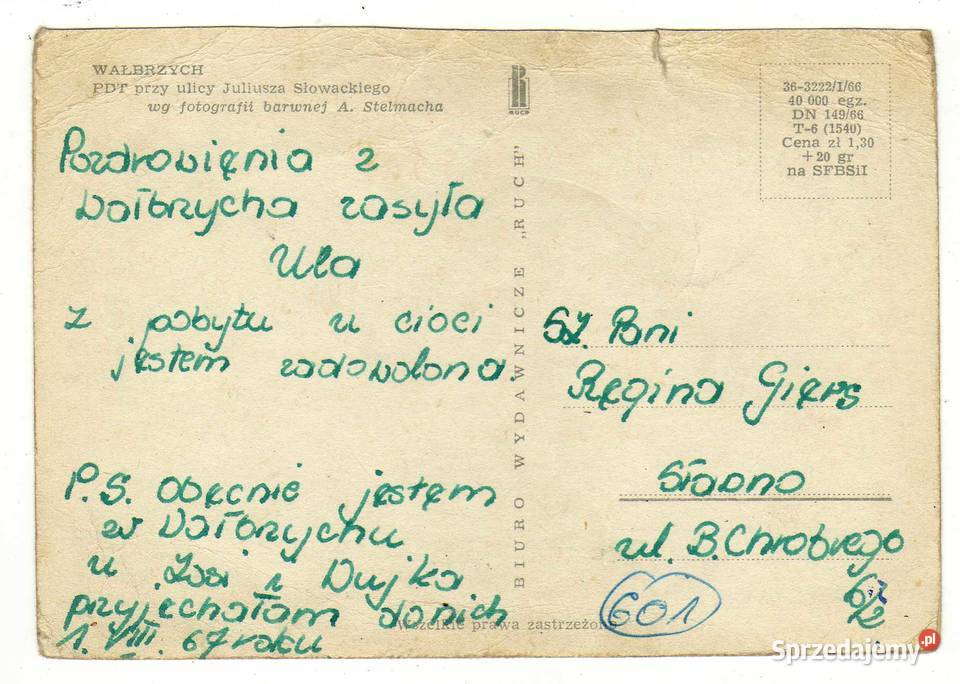 WAŁBRZYCH
PDT przy ulicy Juliusza Słowackiego
wg fotografii barwnej A. Stelmacha
Pozdrowięnia z
Wałbrzycha zasyła
Ula
Z pobytu u cioci
jęstem zadowolona.
P.S. Obęcnie jęstęm
w Wałbrzychu
u Zosi i Wujka
przyjęchałam do nich
1. VIII. 67 roku
RUCH
BIURO WYDAWNICZE „RUCH"
36-3222/I/66
40 000 egz.
DN 149/66
T-6 (1540)
Cena zł 1,30
+20 gr
na SFBSiI
SZ. Pani
Ręgina Gięrs
Sławno
ul. B. Chrobrego
601
Wszelkie prawa zastrzeżone
Sprzedajemy.pl